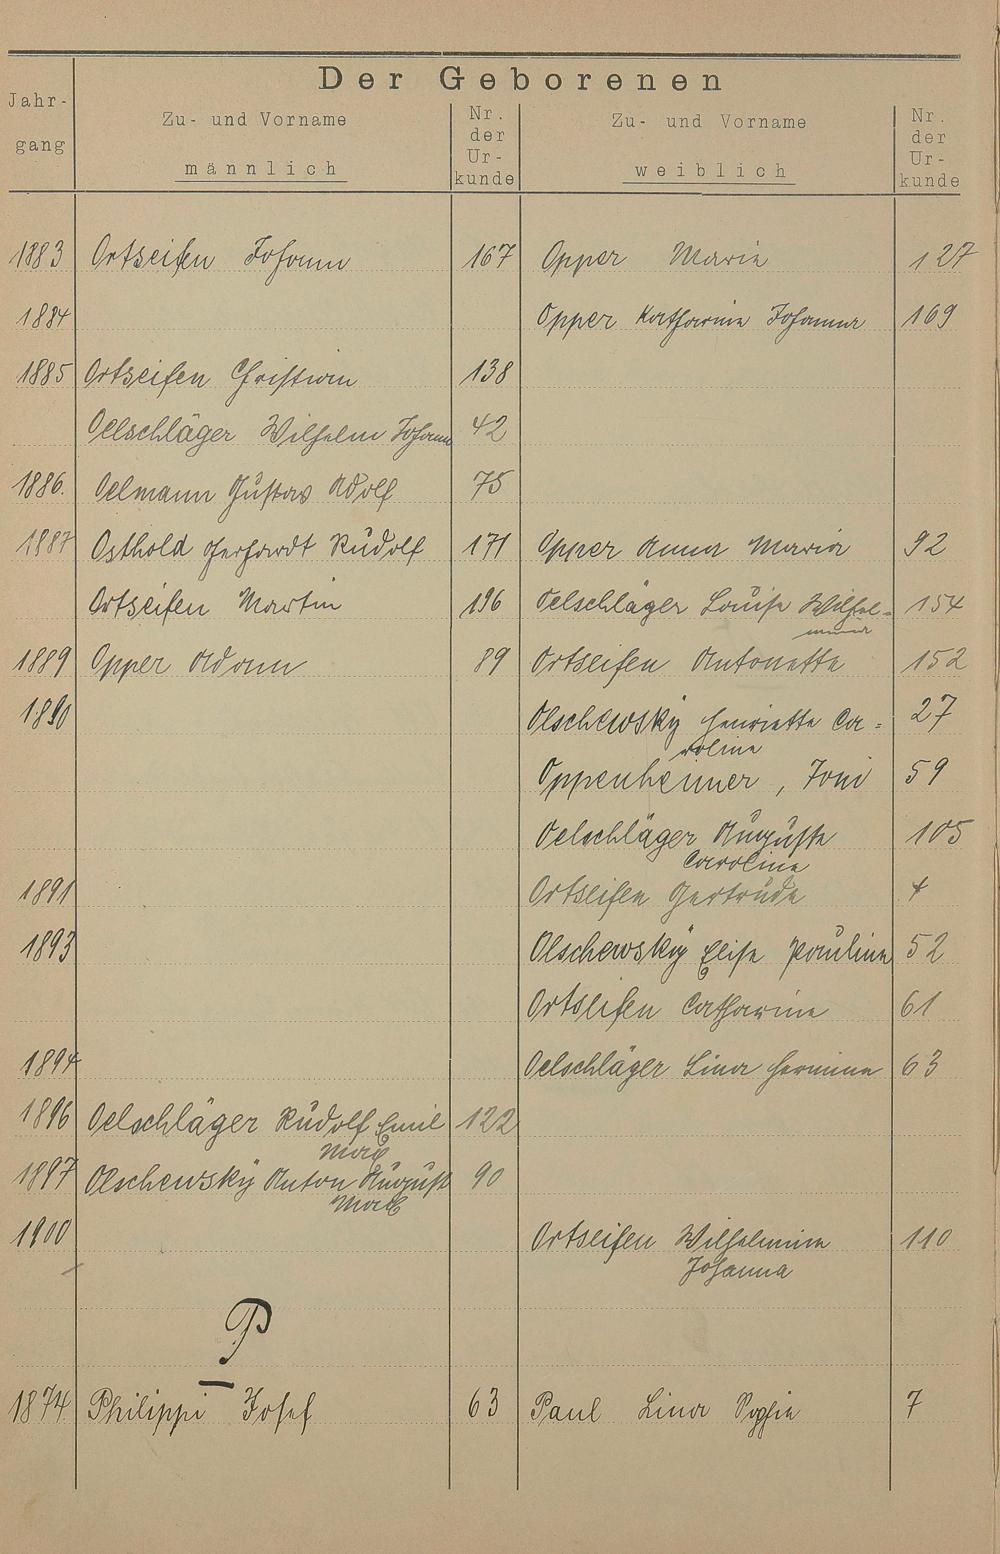 Der Geborenen
Jahr-
gang
Zu- und Vorname
männlich
Nr.
der
Ur-
kunde
Zu- und Vorname
weiblich
Nr.
der
Ur-
kunde
1883 Ortseifen Johann 167 Opper Maria 127
1884 Opper Katharina Johanna 169
1885 Ortseifen Christian 138
Oelschläger Wilhelm Johann 42
1886. Oelmann Gustav Adolf 75
1887 Osthold Gerhardt Rudolf 171 Opper Anna Maria 92
Ortseifen Martin 196 Oelschläger Louise Wilhel= 154
mina
1889 Opper Adam 89 Ortseifen Antonette 152
1890 Olschewsky Henriette Ca= 27
roline
Oppenheimer, Toni 59
Oelschläger Auguste 105
Caroline
1891 Ortseifen Gertrude 4
1893 Olschewsky Elise Pauline 52
Ortseifen Catharina 61
1894 Oelschläger Lina Hermine 63
1896 Oelschläger Rudolf Emil 122
Max
1897 Olschewsky Anton August 90
Max
1900 Ortseifen Wilhelmina 110
Johanna
P
1874 Philippi Josef 63 Paul Lina Sophie 7